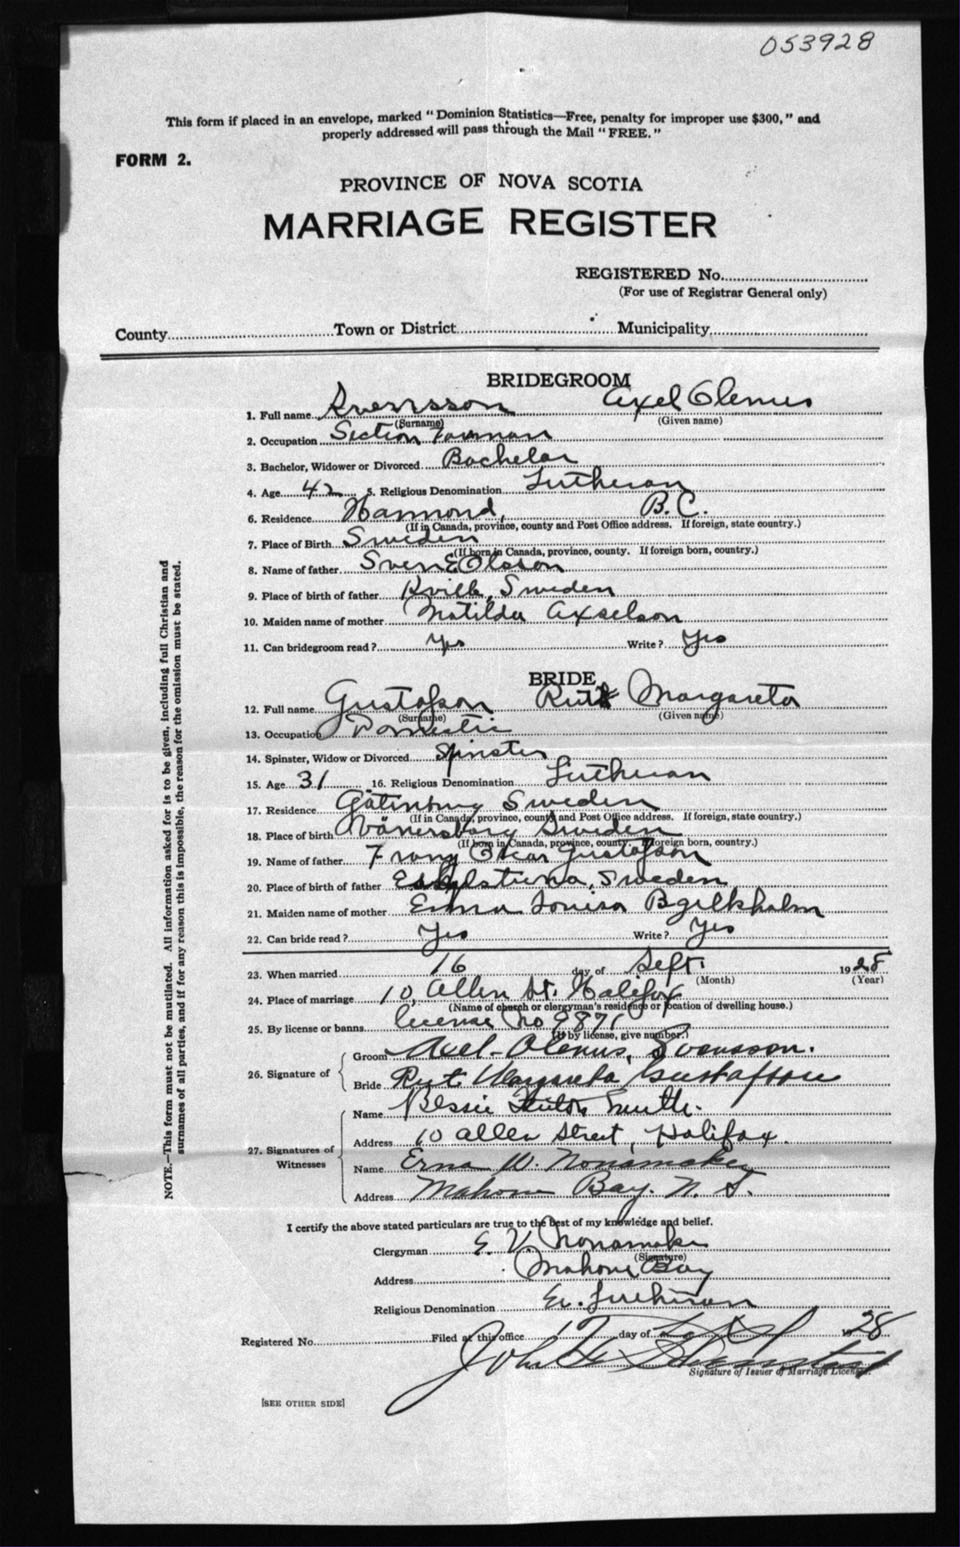 053928
This form if placed in an envelope, marked "Dominion Statistics—Free, penalty for improper use $300," and
properly addressed will pass through the Mail "FREE."
FORM 2.
PROVINCE OF NOVA SCOTIA
MARRIAGE REGISTER
REGISTERED No.
(For use of Registrar General only)
County Town or District Municipality
BRIDEGROOM
1. Full name Svensson Axel Olenius
(Surname) (Given name)
2. Occupation Section Forman
3. Bachelor, Widower or Divorced Bachelor
4. Age 42 5. Religious Denomination Lutheran
6. Residence Hammond, B.C.
(If in Canada, province, county and Post Office address. If foreign, state country.)
7. Place of Birth Sweden
(If born in Canada, province, county. If foreign born, country.)
8. Name of father Sven E Olsson
9. Place of birth of father Kville, Sweden
10. Maiden name of mother Matilda Axselson
11. Can bridegroom read? Yes Write? Yes
BRIDE
12. Full name Gustafson Rut Margareta
(Surname) (Given name)
13. Occupation Domestic
14. Spinster, Widow or Divorced Spinster
15. Age 31 16. Religious Denomination Lutheran
17. Residence Gatenburg Sweden
(If in Canada, province, county and Post Office address. If foreign, state country.)
18. Place of birth Vänersborg Sweden
(If born in Canada, province, county. If foreign born, country.)
19. Name of father Frans Oscar Gustafson
20. Place of birth of father Eskilstuna, Sweden
21. Maiden name of mother Emma Louisa
22. Can bride read? Yes Write? Yes
23. When married 16 day of Sept. 1928
(Month) (Year)
24. Place of marriage 10, Allen St. Halifax
(Name of church or clergyman's residence or location of dwelling house.)
25. By license or banns license No
(If by license, give number.)
26. Signature of
Groom Axel Olenius, Svensson.
Bride Rut Margareta Gustafsson
27. Signatures of Witnesses
Name Bessie Smith.
Address 10 Allen Street, Halifax.
Name Erna W. Nonamaker
Address Mahone Bay. N. S.
I certify the above stated particulars are true to the best of my knowledge and belief.
Clergyman E. V. Nonamaker
(Signature)
Address Mahone Bay
Religious Denomination Ev. Lutheran
Registered No. Filed at this office 17 day of 1928
John
Signature of Issuer of Marriage Licenses.
[SEE OTHER SIDE]
NOTE.—This form must not be mutilated. All information asked for is to be given, including full Christian and
surnames of all parties, and if for any reason this is impossible, the reason for the omission must be stated.